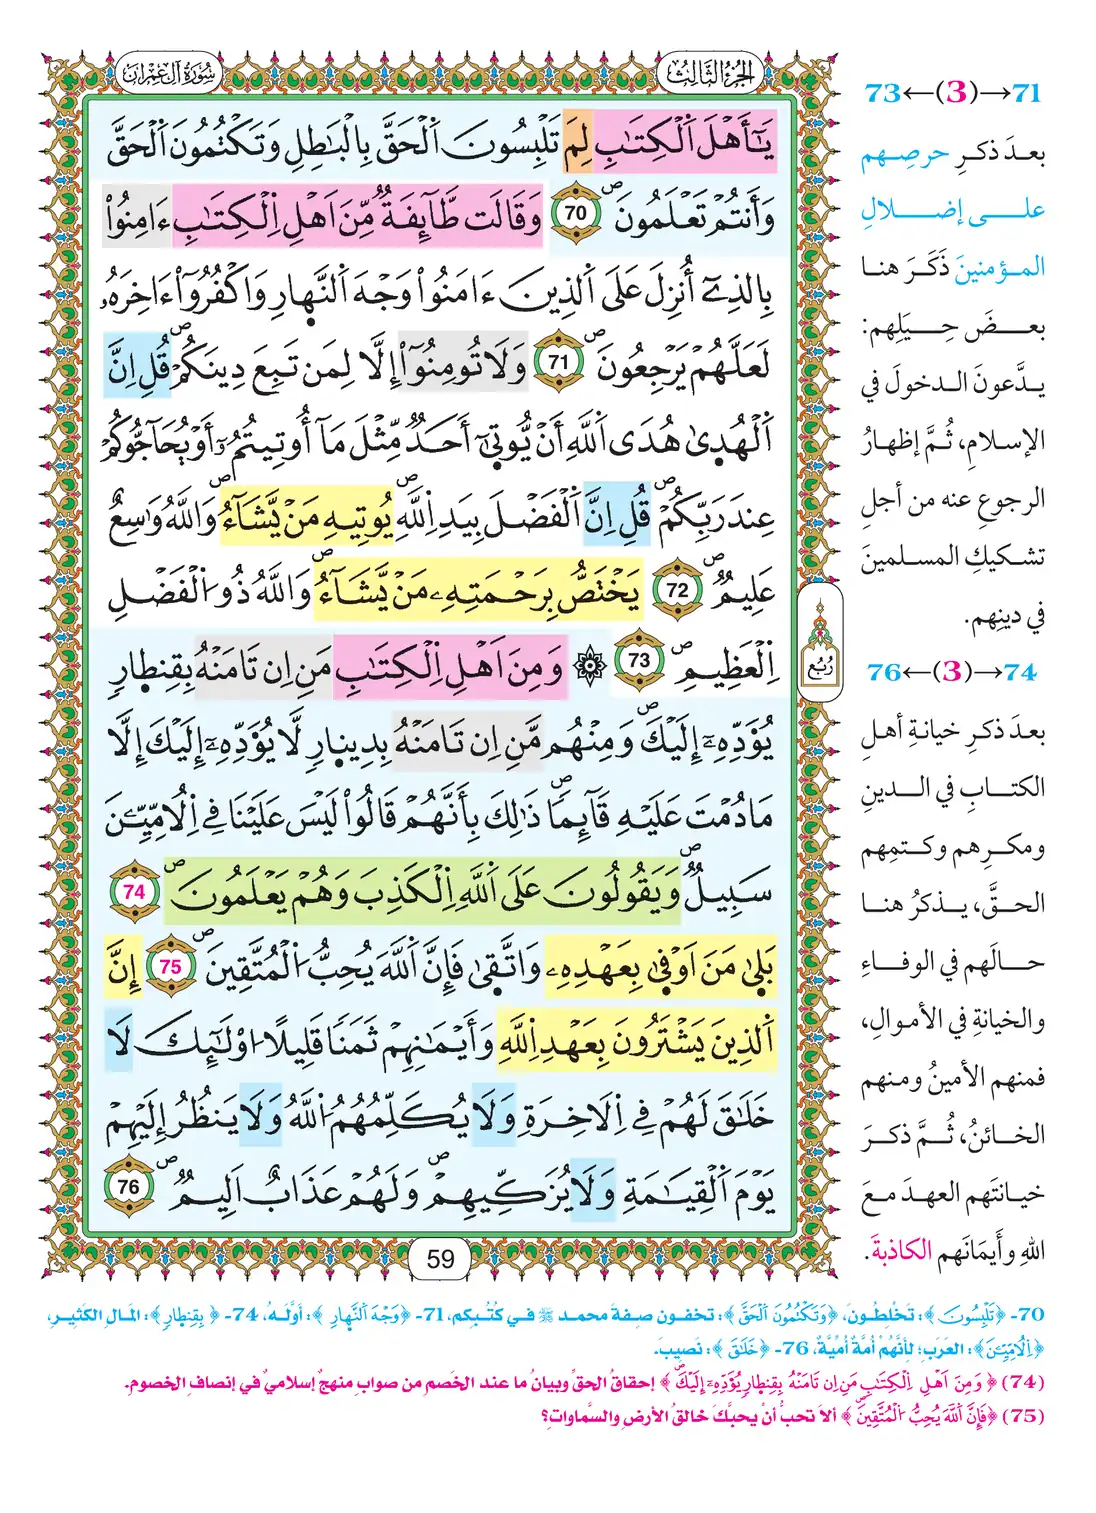 سُورَةُ آلِ عِمْرَان
الجُزْءُ الثَّالِثُ
يَٰٓأَهْلَ اَلْكِتَٰبِ لِمَ تَلْبِسُونَ اَلْحَقَّ بِالْبَٰطِلِ وَتَكْتُمُونَ اَلْحَقَّ
وَأَنتُمْ تَعْلَمُونَۖ 70 وَقَالَت طَّآئِفَةٌ مِّنَ اَهْلِ اِلْكِتَٰبِ ءَامِنُواْ
بِالذِےٓ أُنزِلَ عَلَى اَلذِينَ ءَامَنُواْ وَجْهَ اَلنَّهارِ وَاكْفُرُوٓاْ ءَاخِرَهُۥ
لَعَلَّهُمْ يَرْجِعُونَۖ 71 وَلَا تُومِنُوٓاْ إِلَّا لِمَن تَبِعَ دِينَكُمْۖ قُلِ اِنَّ
اَلْهُد۪ىٰ هُدَى اَللَّهِ أَنْ يُّوت۪ىٰٓ أَحَدٌ مِّثْلَ مَآ أُوتِيتُمُۥٓ أَوْ يُحَآجُّوكُمْ
عِندَ رَبِّكُمْۖ قُلِ اِنَّ اَلْفَضْلَ بِيَدِ اِللَّهِۖ يُوتِيهِ مَنْ يَّشَآءُۖ وَاللَّهُ وَٰسِعٌ
عَلِيمٌۖ 72 يَخْتَصُّ بِرَحْمَتِهِۦ مَنْ يَّشَآءُۖ وَاللَّهُ ذُو اُلْفَضْلِ
اِلْعَظِيمِۖ 73 ۞ وَمِنَ اَهْلِ اِلْكِتَٰبِ مَنِ اِن تَامَنْهُ بِقِنط۪ارٖ
يُؤَدِّهِۦٓ إِلَيْكَۖ وَمِنْهُم مَّنِ اِن تَامَنْهُ بِدِين۪ارٖ لَّا يُؤَدِّهِۦٓ إِلَيْكَ إِلَّا
مَا دُمْتَ عَلَيْهِ قَآئِماٗۖ ذَٰلِكَ بِأَنَّهُمْ قَالُواْ لَيْسَ عَلَيْنَا فِے اِلُامِّيِّـۧنَ
سَبِيلٌۖ وَيَقُولُونَ عَلَى اَللَّهِ اِلْكَذِبَ وَهُمْ يَعْلَمُونَۖ 74
بَل۪ىٰ مَنَ اَوْف۪ىٰ بِعَهْدِهِۦ وَاتَّق۪ىٰ فَإِنَّ اَللَّهَ يُحِبُّ اُلْمُتَّقِينَۖ 75 إِنَّ
اَلذِينَ يَشْتَرُونَ بِعَهْدِ اِللَّهِ وَأَيْمَٰنِهِمْ ثَمَناٗ قَلِيلًا اُوْلَٰٓئِكَ لَا
خَلَٰقَ لَهُمْ فِے اِلَاخِرَةِ وَلَا يُكَلِّمُهُمُ اُللَّهُ وَلَا يَنظُرُ إِلَيْهِمْ
يَوْمَ اَلْقِيَٰمَةِ وَلَا يُزَكِّيهِمْۖ وَلَهُمْ عَذَابٌ اَلِيمٌۖ 76
رُبُع
59
73←(3)→71
بعدَ ذكرِ حرصِهم
على إضلالِ
المؤمنينَ ذَكَرَ هنا
بعضَ حِيَلِهم:
يدَّعونَ الدخولَ في
الإسلامِ، ثُمَّ إظهارُ
الرجوعِ عنه من أجلِ
تشكيكِ المسلمينَ
في دينِهم.
76←(3)→74
بعدَ ذكرِ خيانةِ أهلِ
الكتابِ في الدينِ
ومكرِهم وكتمِهم
الحقَّ، يذكرُ هنا
حالَهم في الوفاءِ
والخيانةِ في الأموالِ،
فمنهم الأمينُ ومنهم
الخائنُ، ثُمَّ ذكرَ
خيانتَهم العهدَ معَ
اللهِ وأَيمَانَهم الكاذبةَ.
70- ﴿تَلْبِسُونَ﴾: تَخْلِطُونَ، ﴿وَتَكْتُمُونَ اَلْحَقَّ﴾: تخفون صفة محمد ﷺ في كُتُبِكم، 71- ﴿وَجْهَ اَلنَّهارِ﴾: أوَّلَهُ، 74- ﴿بِقِنط۪ارٖ﴾: المال الكَثِيرِ،
﴿اِلُامِّيِّـۧنَ﴾: العَرَبِ؛ لأنَّهُمْ أُمَّةٌ أُمِّيَّةٌ، 76- ﴿خَلَٰقَ﴾: نَصِيبَ.
(74) ﴿وَمِنَ اَهْلِ اِلْكِتَٰبِ مَنِ اِن تَامَنْهُ بِقِنط۪ارٖ يُؤَدِّهِۦٓ إِلَيْكَۖ﴾ إحقاقُ الحقِّ وبيانُ ما عند الخَصمِ من صوابٍ منهجٌ إسلاميٌّ في إنصافِ الخصومِ.
(75) ﴿فَإِنَّ اَللَّهَ يُحِبُّ اُلْمُتَّقِينَۖ﴾ ألا تحبُّ أنْ يحبَّكَ خالقُ الأرضِ والسَّماواتِ؟